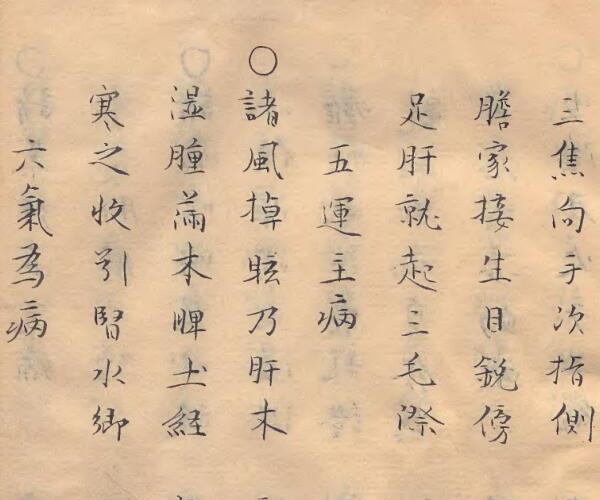 三焦向手次指側
膽家接生目銳傍
足肝就起三毛際
五運主病
○諸風掉眩乃肝木
湿腫滿本脾土経
寒之收引腎水鄉
六氣為病